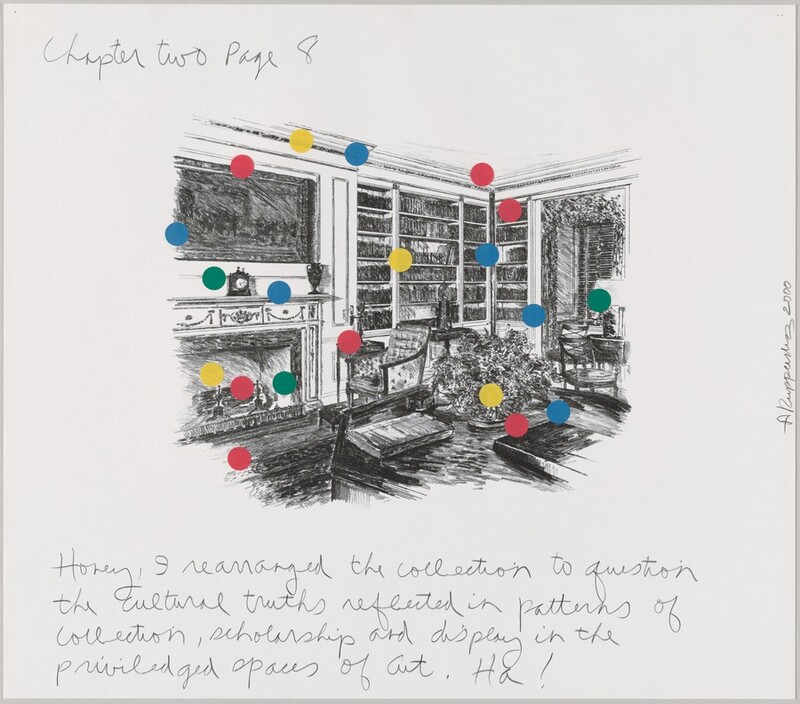 Chapter two Page 8
Honey, I rearranged the collection to question
the cultural truths reflected in patterns of
collection, scholarship and display in the
priviledged spaces of Art. Ha!
A Ruppersberg 2000